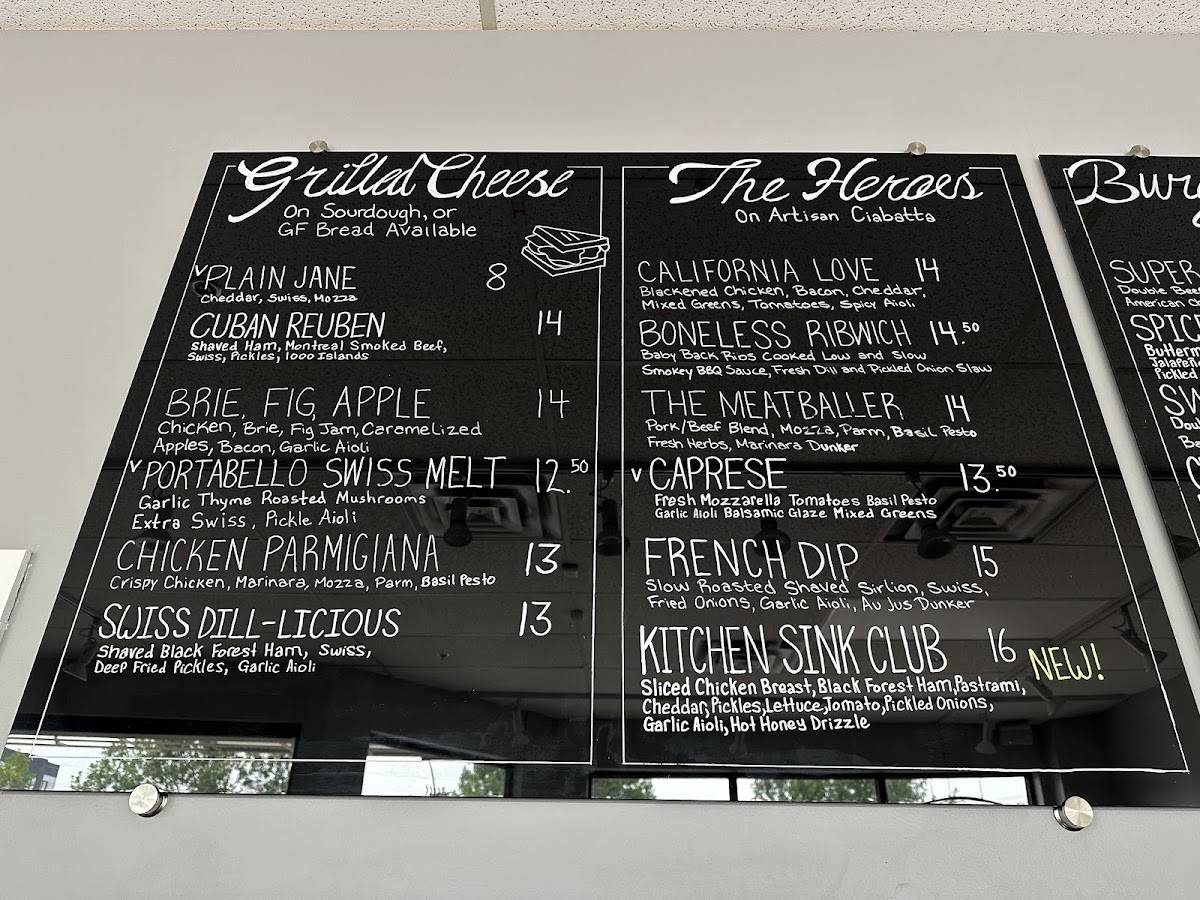 Grilled Cheese
On Sourdough, or
GF Bread Available
V PLAIN JANE 8
Cheddar, Swiss, Mozza
CUBAN REUBEN 14
Shaved Ham, Montreal Smoked Beef,
Swiss, Pickles, 1000 Islands
BRIE, FIG, APPLE 14
Chicken, Brie, Fig Jam, Caramelized
Apples, Bacon, Garlic Aioli
V PORTABELLO SWISS MELT 12.50
Garlic Thyme Roasted Mushrooms
Extra Swiss, Pickle Aioli
CHICKEN PARMIGIANA 13
Crispy Chicken, Marinara, Mozza, Parm, Basil Pesto
SWISS DILL-LICIOUS 13
Shaved Black Forest Ham, Swiss,
Deep Fried Pickles, Garlic Aioli
The Heroes
On Artisan Ciabatta
CALIFORNIA LOVE 14
Blackened Chicken, Bacon, Cheddar,
Mixed Greens, Tomatoes, Spicy Aioli
BONELESS RIBWICH 14.50
Baby Back Ribs Cooked Low and Slow
Smokey BBQ Sauce, Fresh Dill and Pickled Onion Slaw
THE MEATBALLER 14
Pork/Beef Blend, Mozza, Parm, Basil Pesto
Fresh Herbs, Marinara Dunker
V CAPRESE 13.50
Fresh Mozzarella Tomatoes Basil Pesto
Garlic Aioli Balsamic Glaze Mixed Greens
FRENCH DIP 15
Slow Roasted Shaved Sirlion, Swiss,
Fried Onions, Garlic Aioli, Au Jus Dunker
KITCHEN SINK CLUB 16 NEW!
Sliced Chicken Breast, Black Forest Ham, Pastrami,
Cheddar, Pickles, Lettuce, Tomato, Pickled Onions,
Garlic Aioli, Hot Honey Drizzle
SUPER
Double
American
Pickled